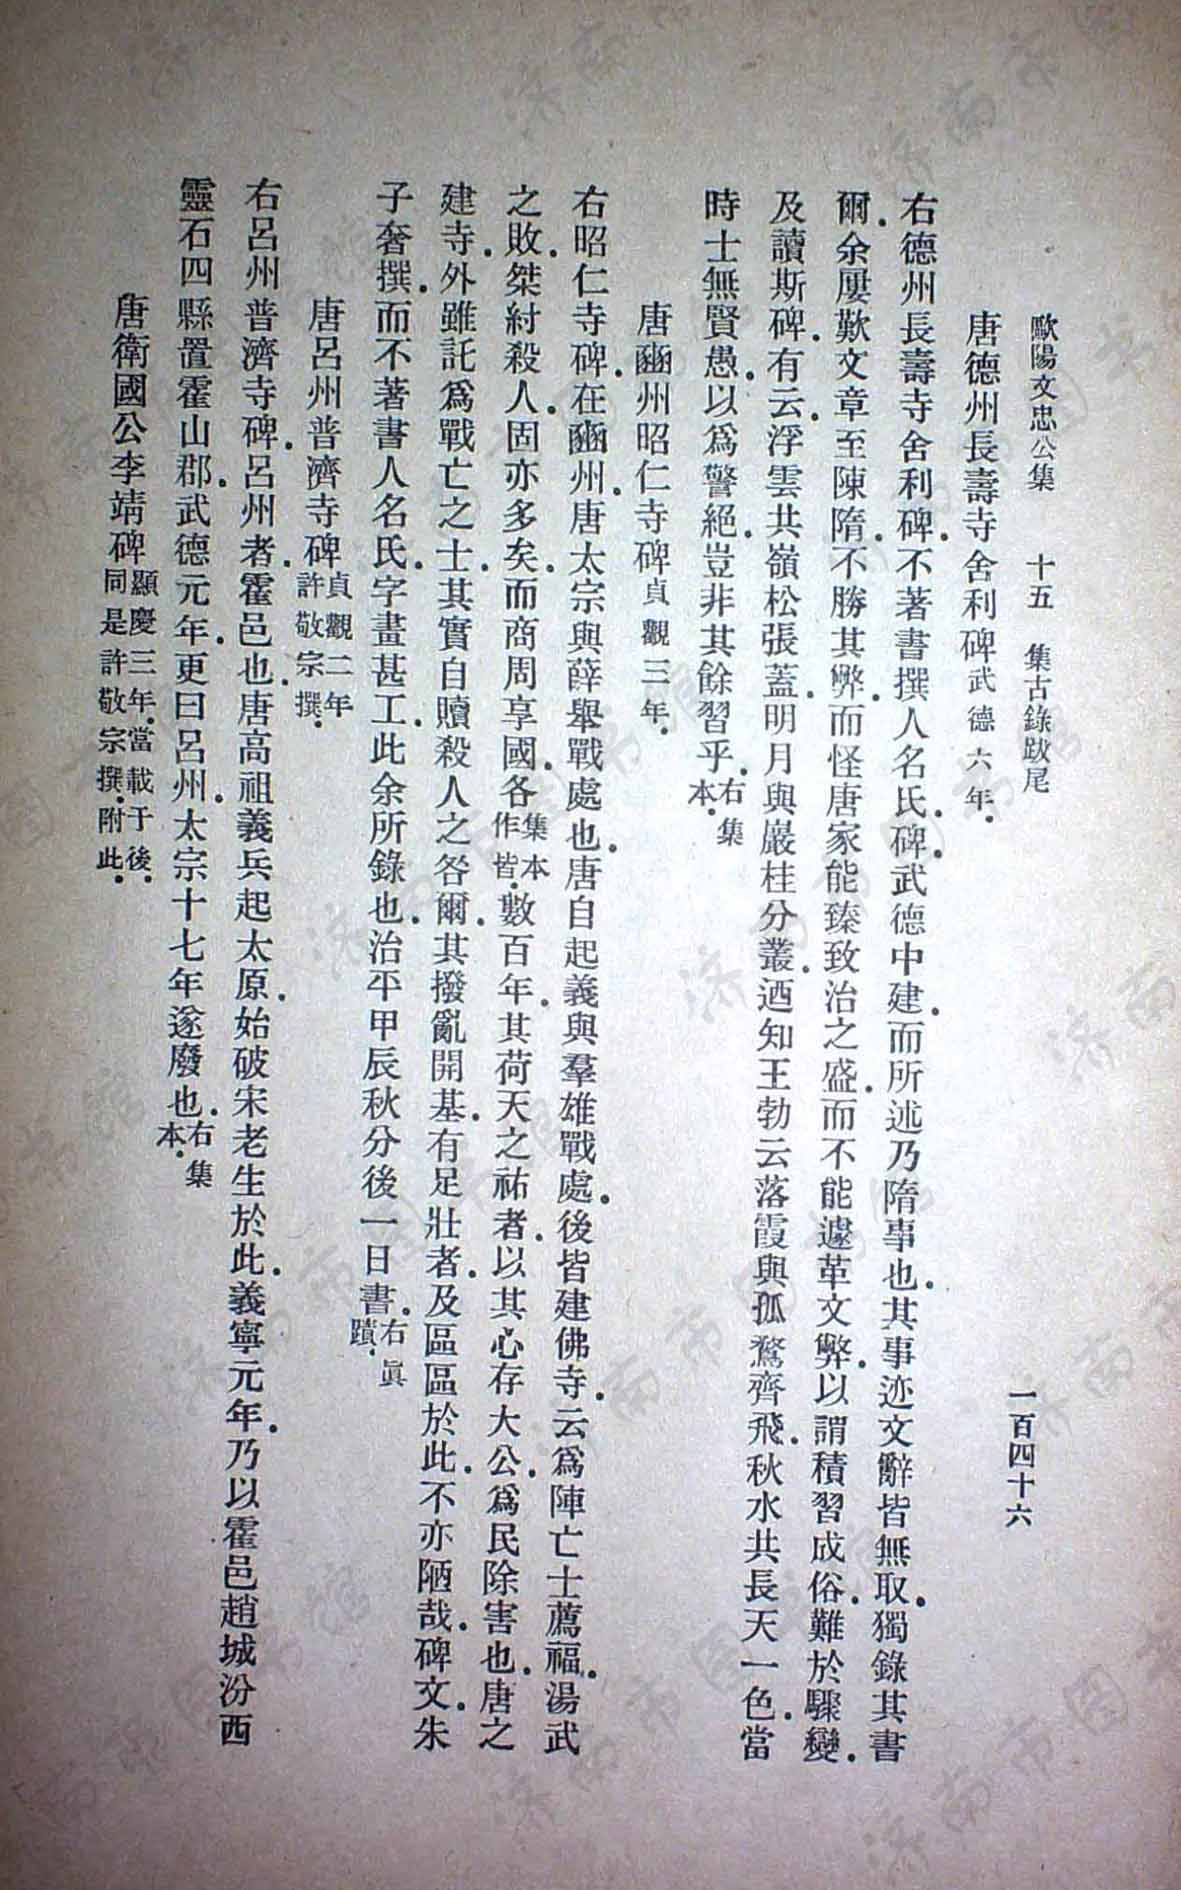 歐陽文忠公集 十五 集古錄跋尾 一百四十六
唐德州長壽寺舍利碑武德六年.
右德州長壽寺舍利碑.不著書撰人名氏.碑.武德中建.而所述乃隋事也.其事迹文辭皆無取.獨錄其書
爾.余屢歎文章至陳隋.不勝其弊.而怪唐家能臻致治之盛.而不能遽革文弊.以謂積習成俗.難於驟變.
及讀斯碑.有云.浮雲共嶺松張蓋.明月與巖桂分叢.迺知王勃云落霞與孤鶩齊飛.秋水共長天一色.當
時士無賢愚.以爲警絕.豈非其餘習乎.右集本.
唐豳州昭仁寺碑貞觀三年.
右昭仁寺碑.在豳州.唐太宗與薛舉戰處也.唐自起義與羣雄戰處.後皆建佛寺.云爲陣亡士薦福.湯武
之敗.桀紂殺人.固亦多矣.而商周享國.各集本作皆.數百年.其荷天之祐者.以其心存大公.爲民除害也.唐之
建寺.外雖託爲戰亡之士.其實自贖殺人之咎爾.其撥亂開基.有足壯者.及區區於此.不亦陋哉.碑文.朱
子奢撰.而不著書人名氏.字畫甚工.此余所錄也.治平甲辰秋分後一日書.右眞蹟.
唐呂州普濟寺碑貞觀二年許敬宗撰.
右呂州普濟寺碑.呂州者.霍邑也.唐高祖義兵起太原.始破宋老生於此.義寧元年.乃以霍邑趙城汾西
靈石四縣置霍山郡.武德元年.更曰呂州.太宗十七年遂廢也.右集本.
唐衛國公李靖碑顯慶三年.當載于後.同是許敬宗撰.附此.